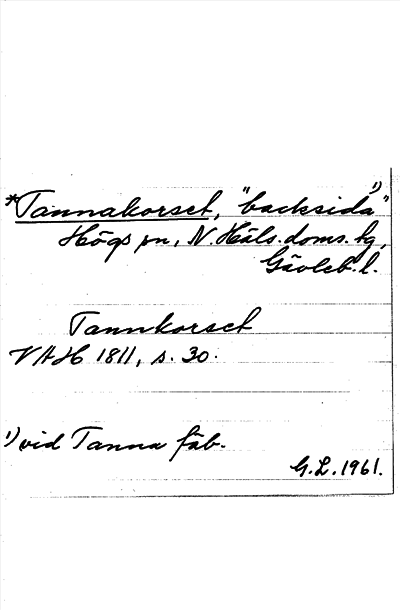 *Tannakorset, "backsida"¹)
Högs sn, N. Häls. doms. hg,
Gävleb. l.
Tannkorset
VAH 1811, s. 30.
¹) vid Tanna fäb.
G.L. 1961.